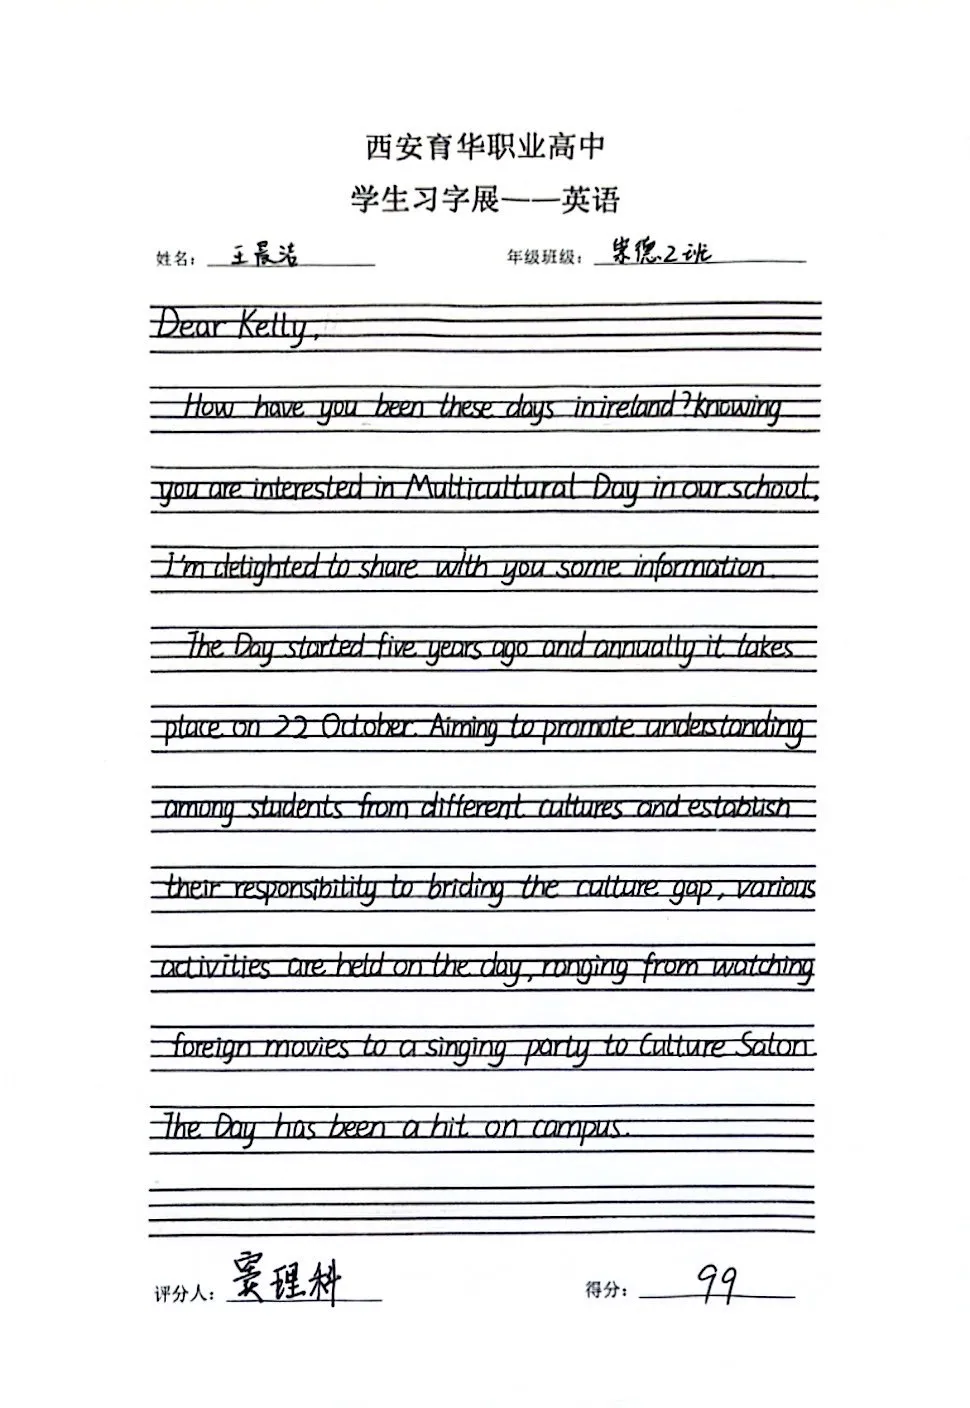 西安育华职业高中
学生习字展——英语
姓名： 王晨洁 年级班级： 崇德2班
Dear Kelly,
How have you been these days in ireland? knowing
you are interested in Multicultural Day in our school,
I'm delighted to share with you some information.
The Day started five years ago and annually it takes
place on 22 October. Aiming to promote understanding
among students from different cultures and establish
their responsibility to briding the culture gap, various
activities are held on the day, ranging from watching
foreign movies to a singing party to Culture Salon.
The Day has been a hit on campus.
评分人： 窦理科 得分： 99